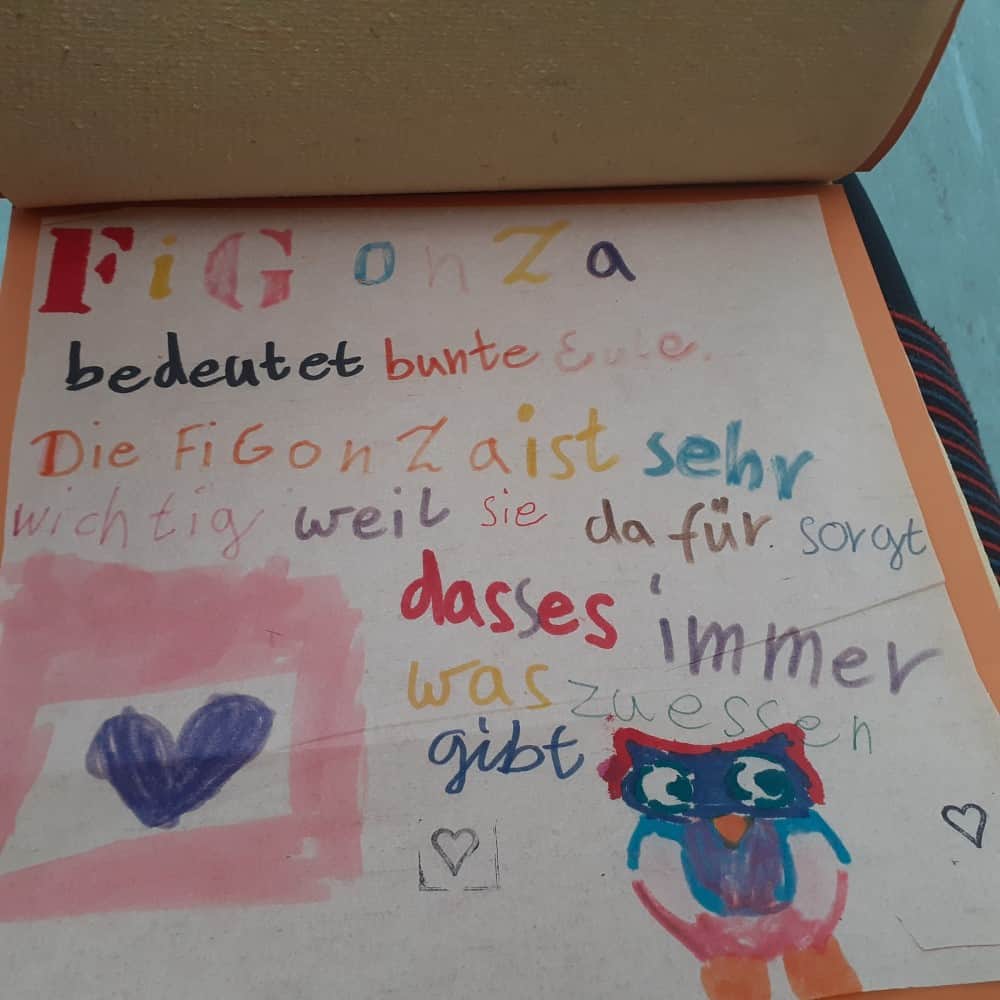 FiGonZa
bedeutet bunte Eule.
Die FiGonZa ist sehr
wichtig weil sie dafür sorgt
dasses immer
was zuessen
gibt